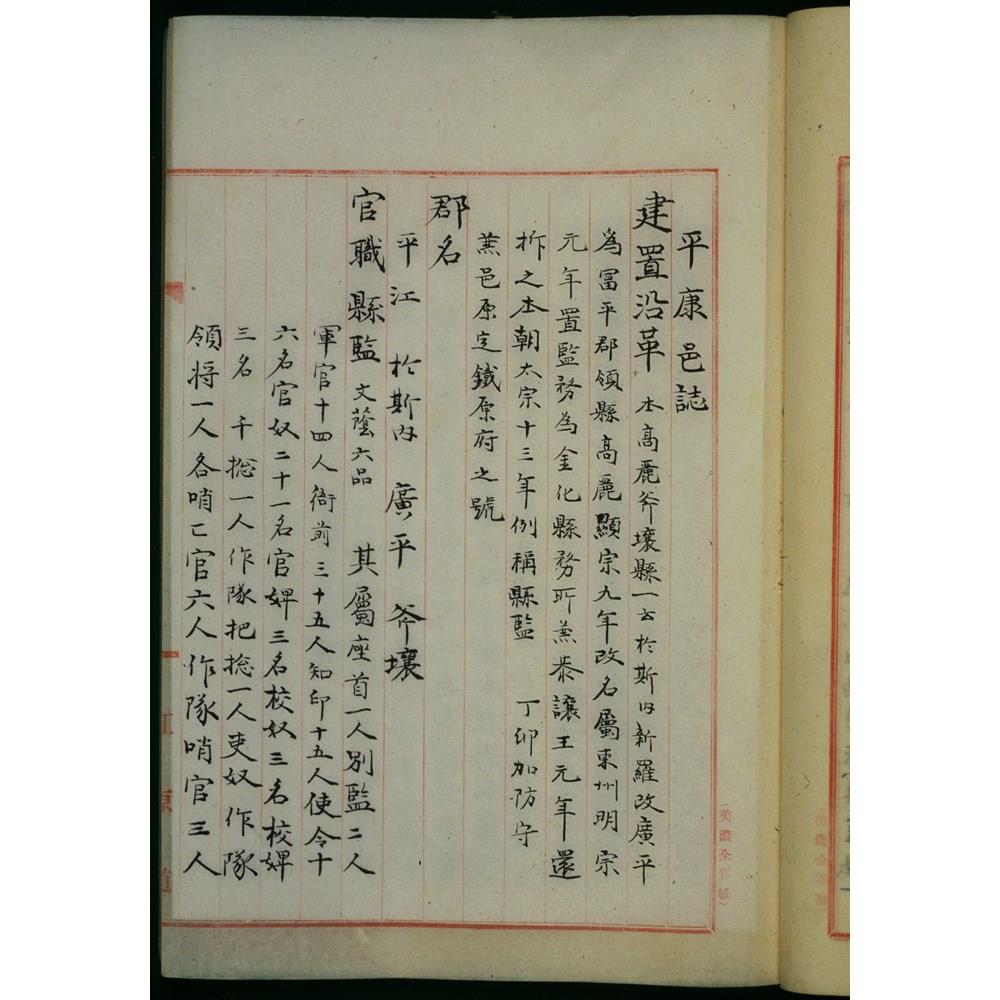 平康邑誌
建置沿革 本高麗斧壤縣一云於斯內新羅改廣平
為富平郡領縣高麗顯宗九年改名屬東州明宗
元年置監務為金化縣務所兼恭讓王元年還
拆之本朝太宗十三年例稱縣監 丁卯加防守
兼邑原定鐵原府之號
郡名
平江 於斯內 廣平 斧壤
官職縣監文蔭六品 其屬座首一人別監二人
軍官十四人衙前三十五人知印十五人使令十
六名官奴二十一名官婢三名校奴三名校婢
三名 千摠一人作隊把摠一人吏奴作隊
領將一人各哨亡官六人作隊哨官三人
(美濃全罫紙)